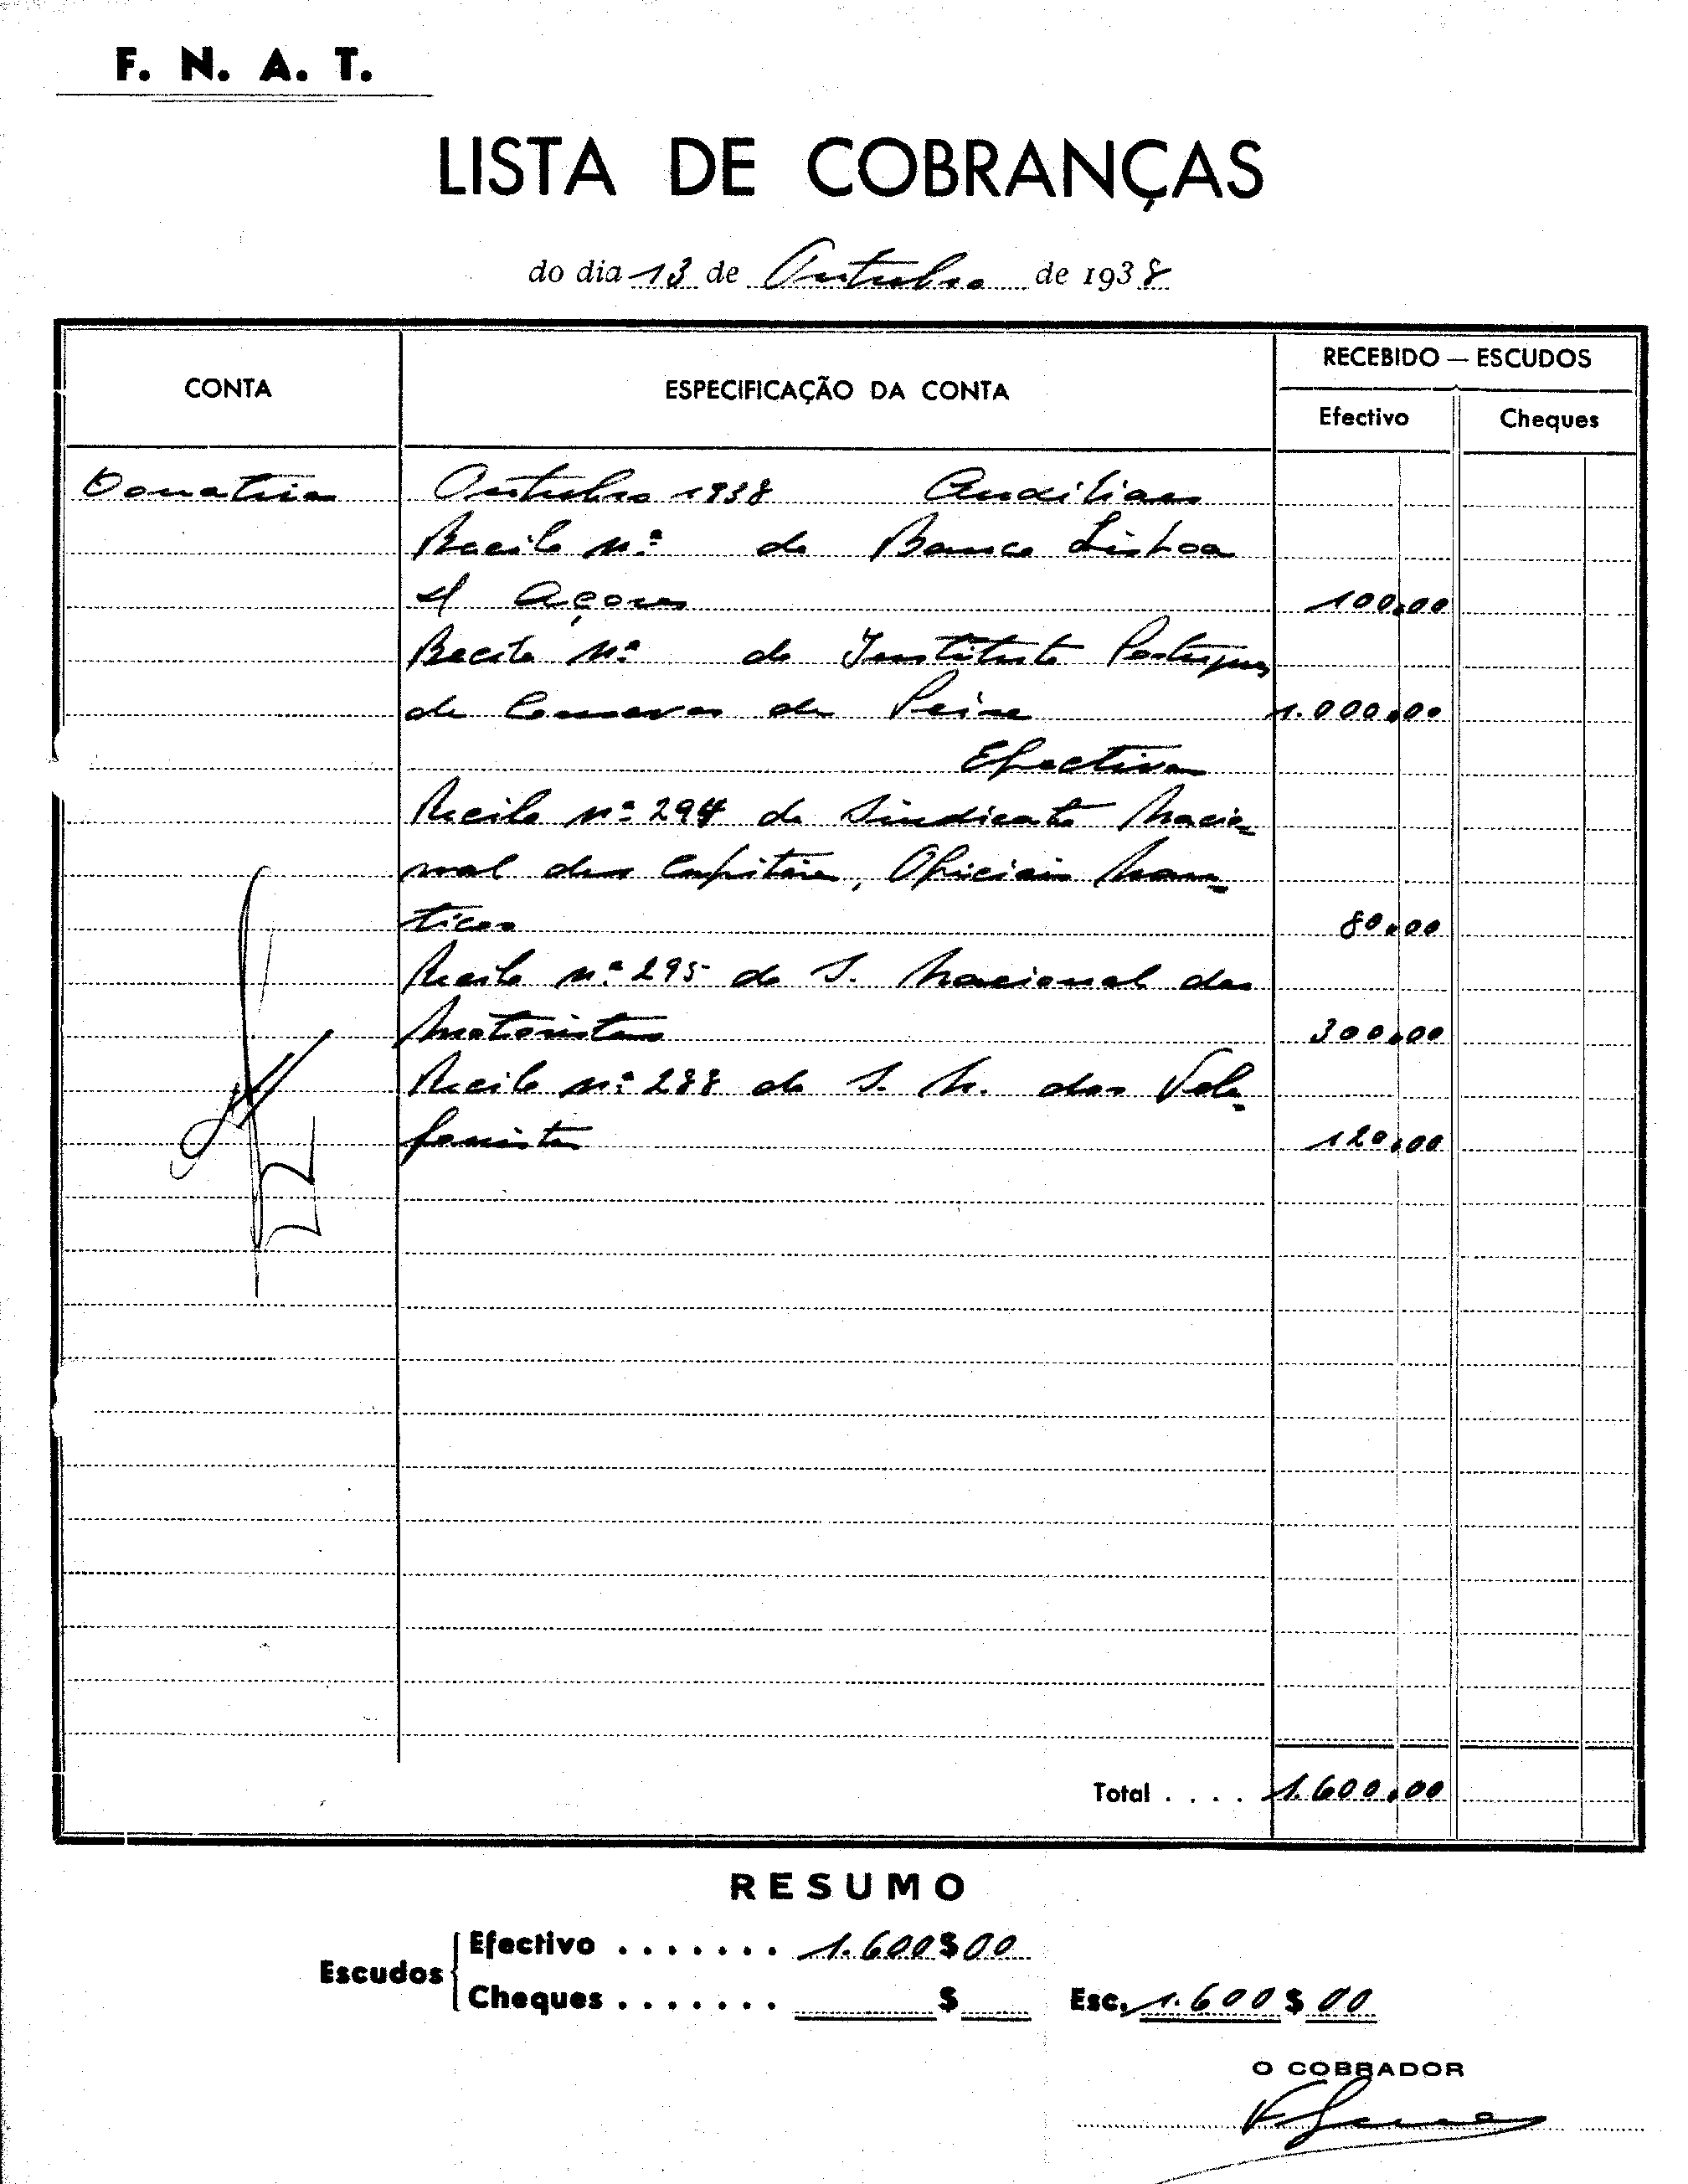 F. N. A. T.
LISTA DE COBRANÇAS
do dia 13 de Outubro de 1938
CONTA
ESPECIFICAÇÃO DA CONTA
RECEBIDO — ESCUDOS
Efectivo
Cheques
Donativos Outubro 1938 Auxiliares
Recibo n.º do Banco Lisboa
& Açores 100,00
Recibo n.º do Instituto Portugues
de Conservas de Peixe 1.000,00
Efectivos
Recibo n.º 294 do Sindicato Nacio-
nal dos Capitães, Oficiais Nau-
ticos 80,00
Recibo n.º 295 do S. Nacional dos
Motoristas 300,00
Recibo n.º 288 do S. N. dos Tele-
fonistas 120,00
Total . . . . 1.600,00
RESUMO
Escudos
Efectivo . . . . . . . 1.600$00
Cheques . . . . . . . $
Esc. 1.600$00
O COBRADOR